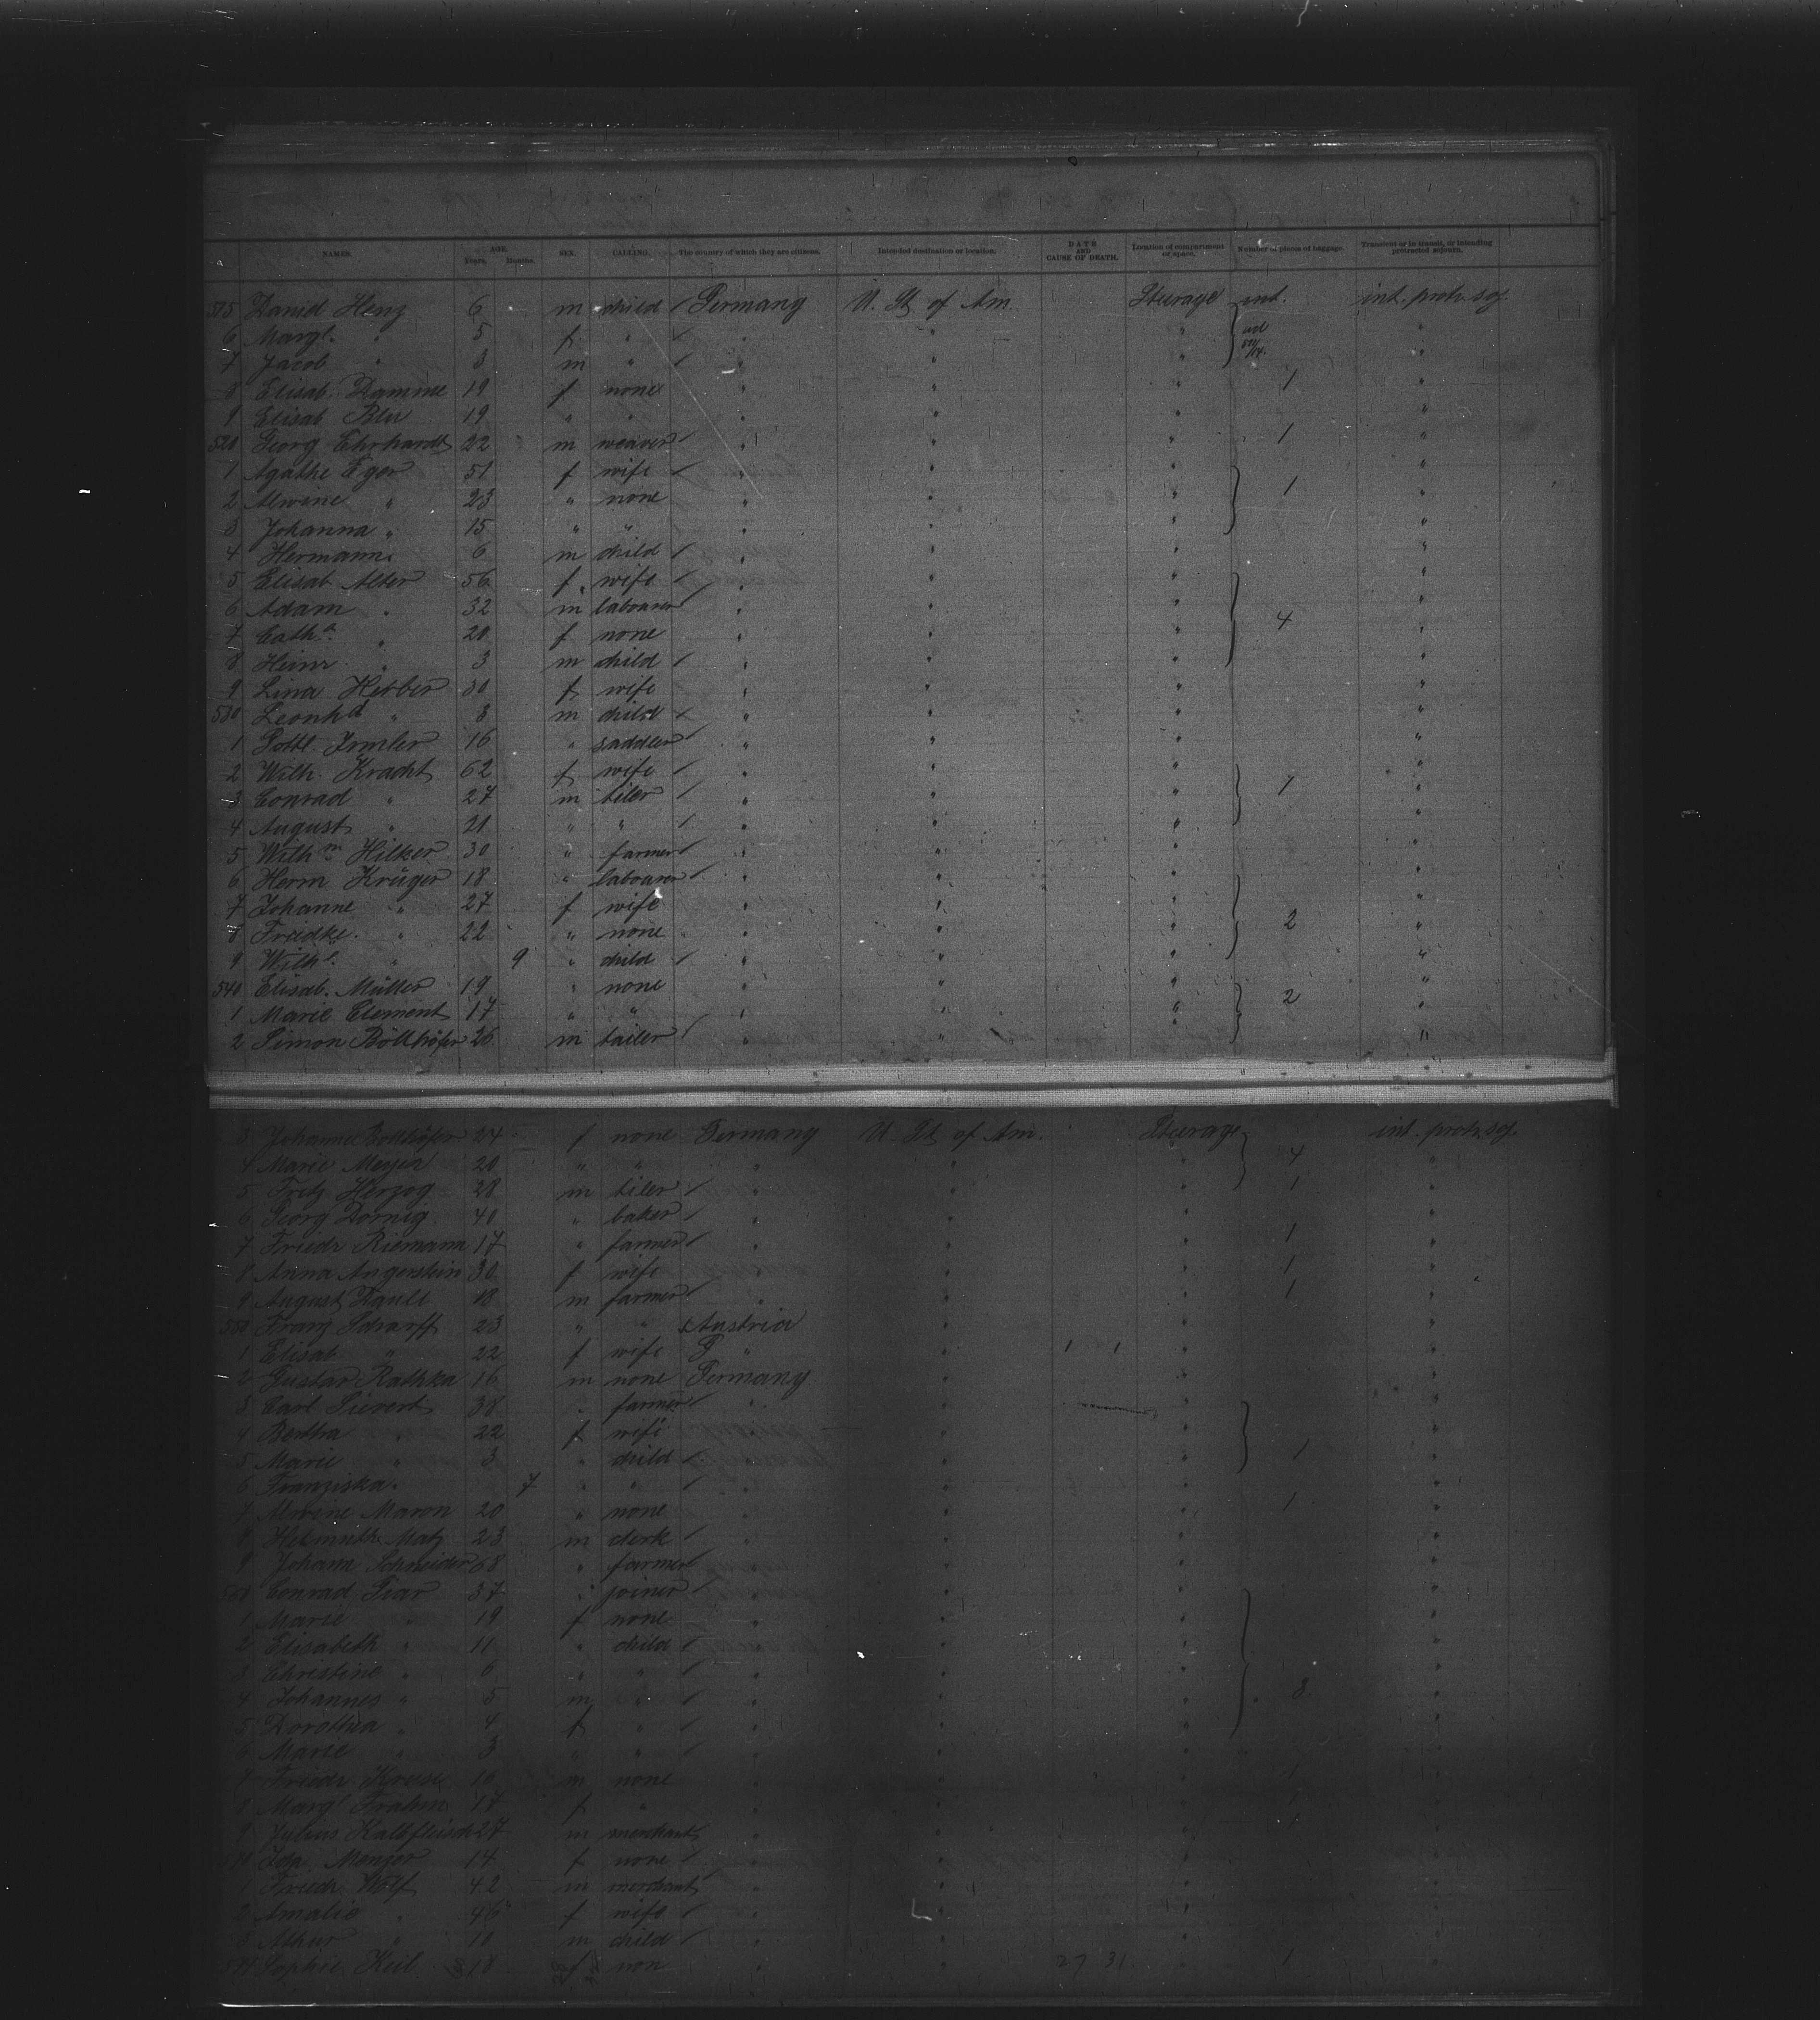 NAMES. AGE. Years. Months. SEX. CALLING. The country of which they are citizens. Intended destination or location. DATE AND CAUSE OF DEATH. Location of compartment or space. Number of pieces of baggage. Transient or in transit, or intending protracted sojourn.
515 Daniel Henz 6 m child Germany U. St. of Am. Steerage int. protr. soj.
6 Margt. " 5 f " " " " "
7 Jacob " 3 m " " " " "
8 Elisab. Damme 19 f none " " " 1 "
9 Elisab 19 " " " " " "
520 Georg Ehrhardt 22 m weaver " " " 1 "
1 Agathe Eger 51 f wife " " " "
2 Alwine " 23 " none " " " 1 "
3 Johanna " 15 " " " " " "
4 Hermann " 6 m child " " " "
5 Elisab Alter 56 f wife " " " "
6 Adam " 32 m labourer " " " "
7 Cath.a " 20 f none " " " 4 "
8 Heinr " 3 m child " " " "
9 Lina Herber 30 f wife " " " "
530 Leonhd " 8 m child " " " "
1 Gottl. Irmler 16 " saddler " " " "
2 Wilh. Kracht 62 f wife " " " "
3 Conrad " 27 m tiler " " " 1 "
4 August " 21 " " " " " "
5 Wilhm Hilker 30 " farmer " " " "
6 Herm Krüger 18 " labourer " " " "
7 Johanne " 27 f wife " " " "
8 Friedke. " 22 " none " " " 2 "
9 Wilhe. " 9 " child " " " "
540 Elisab. Müller 19 " none " " " "
1 Marie Clement 17 " " " " " 2 "
2 Simon Böllhöfer 26 m tailer " " " "
3 Johanne Böllhöfer 24 f none Germany U. St. of Am. Steerage int. protr. soj.
4 Marie Meyer 20 " " " " " 4 "
5 Fritz Herzog 28 m tiler " " " 1 "
6 Georg Dornig 40 " baker " " " "
7 Friedr Riemann 17 " farmer " " " 1 "
8 Anna Angerstein 30 f wife " " " 1 "
9 August 18 m farmer " " " 1 "
550 Franz Scharff 23 " " Austria " " "
1 Elisab " 22 f wife " " " "
2 Gustav Rathka 16 m none Germany " " "
3 Carl Sievert 38 " farmer " " " "
4 Bertha " 22 f wife " " " "
5 Marie " 3 " child " " " 1 "
6 Franziska " 7 " " " " " "
7 Alwine Maron 20 " none " " " 1 "
8 Helmuth Matz 23 m clerk " " " "
9 Johann Schneider 68 " farmer " " " "
560 Conrad 37 " joiner " " " "
1 Marie " 19 f none " " " "
2 Elisabeth " 11 " child " " " "
3 Christine " 6 " " " " " "
4 Johannes " 5 m " " " " 8 "
5 Dorothea " 4 f " " " " "
6 Marie " 3 " " " " " "
7 Friedr Kruse 16 m none " " " 1 "
8 Margt. Frahm 17 f " " " " "
9 Julius Kalbfleisch 27 m merchant " " " "
570 Ida Menger 14 f none " " " "
1 Friedr. Wolf 42 m merchant " " " "
2 Amalie " 46 f wife " " " "
3 " 10 m child " " " "
574 Sophie Keil 18 f non " " 27 31 " 1 "